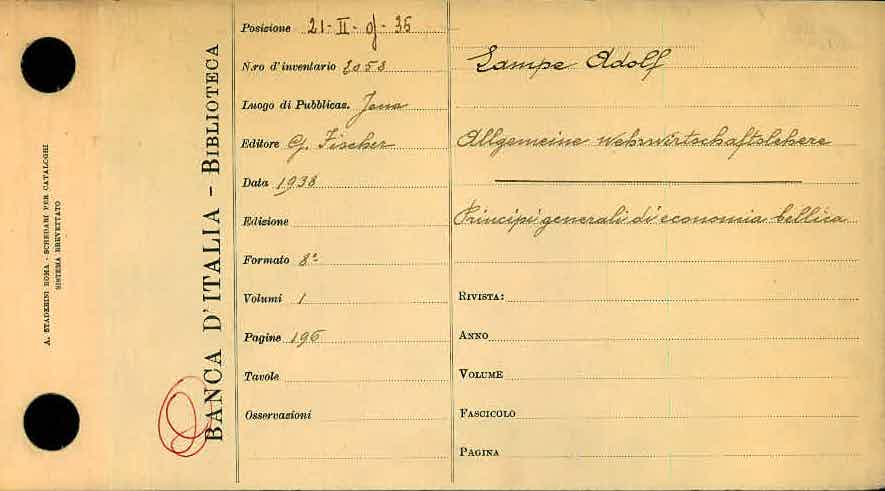 A. STADERINI ROMA - SCHEDARI PER CATALOGHI
SISTEMA BREVETTATO
BANCA D'ITALIA - BIBLIOTECA
Posizione 21-II-g-35
N.ro d'inventario 2058
Luogo di Pubblicaz. Jena
Editore G. Fischer
Data 1938
Edizione
Formato 8º
Volumi 1
Pagine 196
Tavole
Osservazioni
Lampe Adolf
Allgemeine Wehrwirtschaftslehere
Principi generali di economia bellica
RIVISTA:
ANNO
VOLUME
FASCICOLO
PAGINA